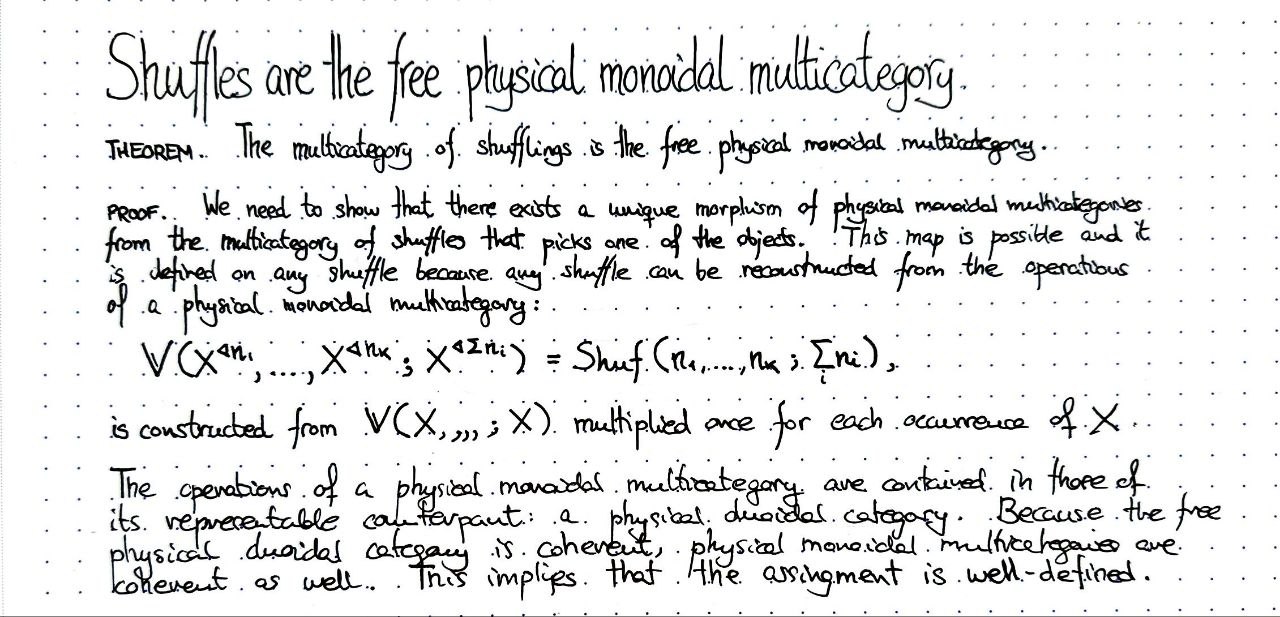 Shuffles are the free physical monoidal multicategory.
THEOREM. The multicategory of shufflings is the free physical monoidal multicategory.
PROOF. We need to show that there exists a unique morphism of physical monoidal multicategories
from the multicategory of shuffles that picks one of the objects. This map is possible and it
is defined on any shuffle because any shuffle can be reconstructed from the operations
of a physical monoidal multicategory:
𝕍(X^{◁n₁},...., X^{◁nₖ}; X^{◁Σnᵢ}) = Shuf(n₁,....,nₖ; Σᵢnᵢ),
is constructed from 𝕍(X,,,,; X) multiplied once for each occurrence of X.
The operations of a physical monoidal multicategory are contained in those of
its representable counterpart: a physical duoidal category. Because the free
physical duoidal category is coherent, physical monoidal multicategories are
coherent as well. This implies that the assingment is well-defined.